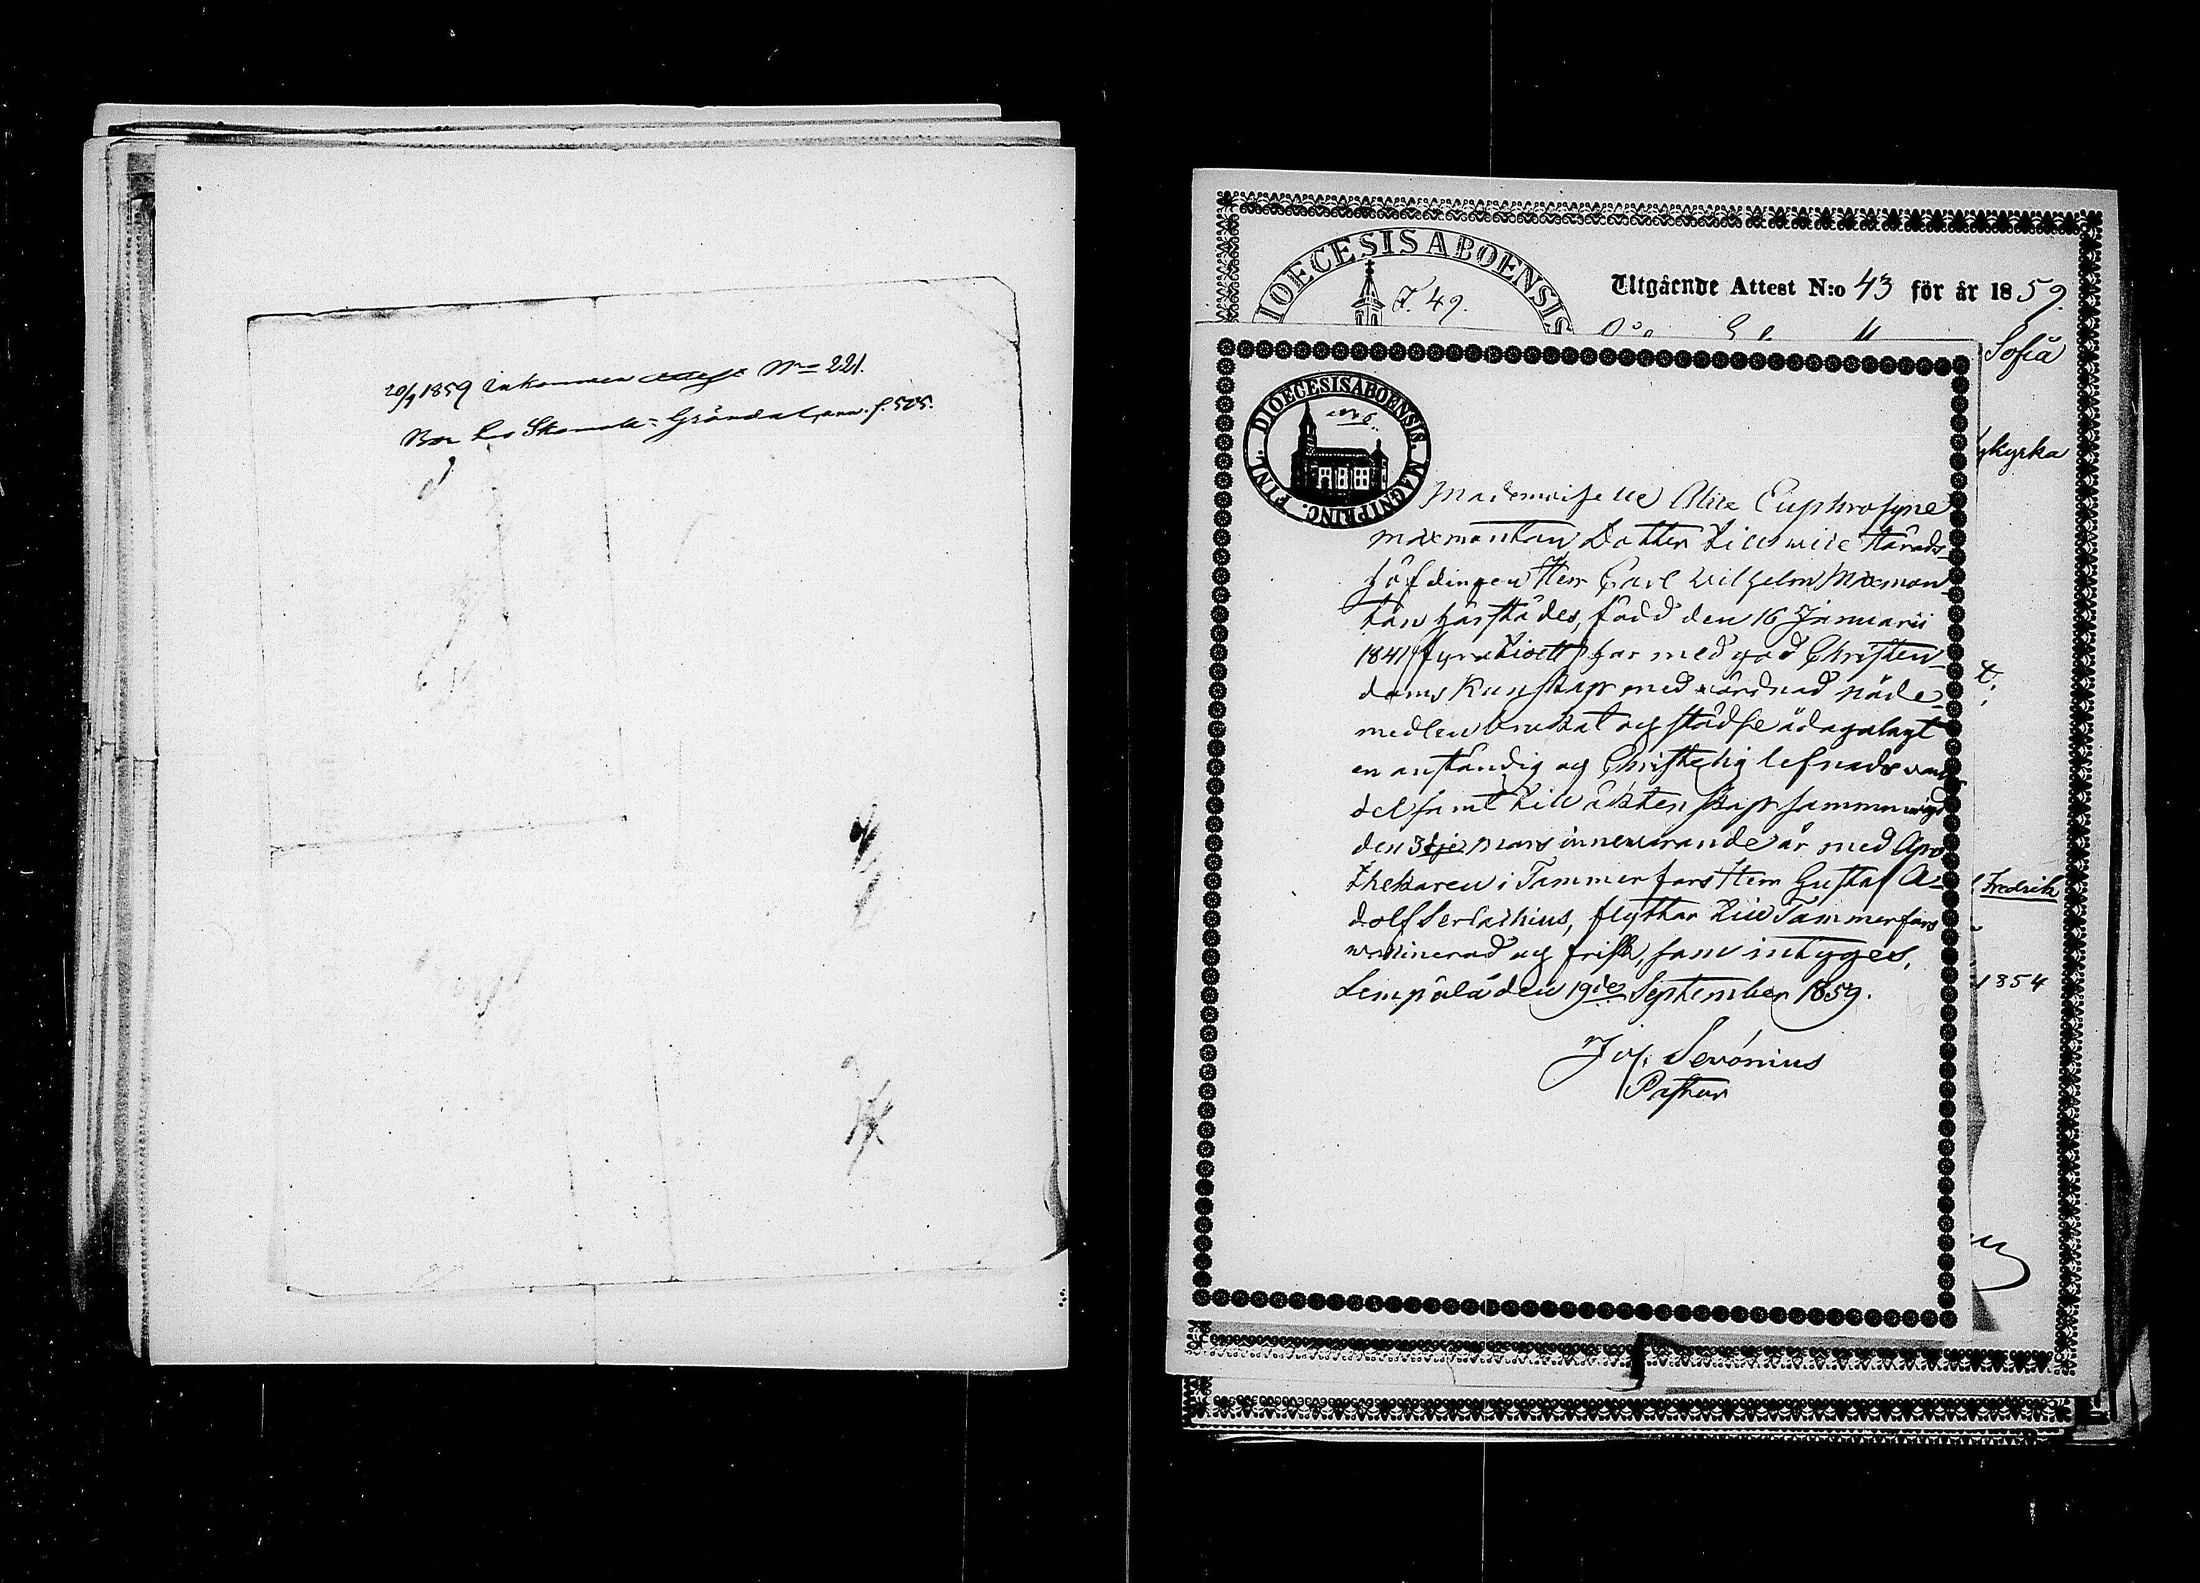 20/9 1859 Inkommen attest No 221.
Bor hos Skomak: Gröndal, pag. 505.
DIOECESIS ABOENSIS
F. 49.
Utgående Attest N:o 43 för år 1859.
Sofia
kyrka
t.
Fredrik
1854
DIOECESIS ABOENSIS. MAGNI PRINC. FINL.
No 6.
Mademoiselle Alice Euphrosyne
Maxmontan Dotter till wice Härads-
höfdingen Herr Carl Wilhelm Maxmon-
tan härstädes, född den 16 Januarii
1841 (fyrationett) har med god Christen-
doms kunskap med wördnad nåde-
medlen brukat och städse ådagalagt
en anständig och Christelig lefnadswan-
del samt till äktenskap sammanvigd
den 3dje Mars innewarande år med Apo-
thekaren i Tammerfors Herr Gustaf A-
dolf Serlachius, flyttar till Tammerfors
waccinerad och frisk, som intygas,
Lempälä den 19de September 1859.
Jos. Sevónius
Pastor